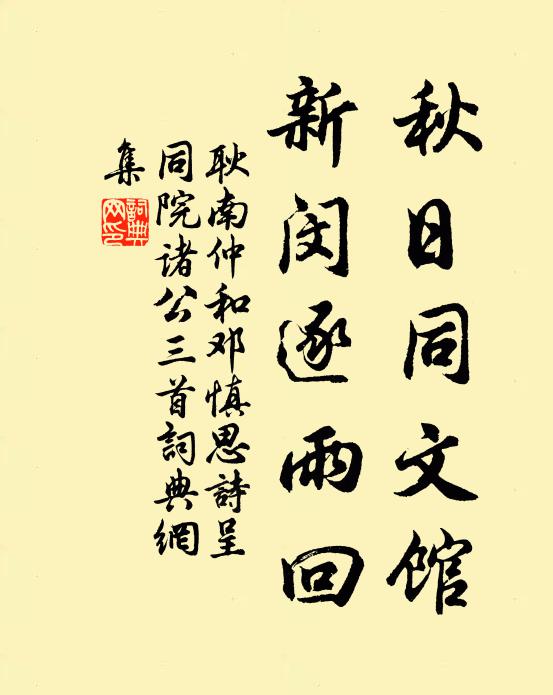 秋日同文馆
新闵逐雨回
耿南仲和邓慎思詩呈
同院诸公三首詞典網
集
詞典
网印